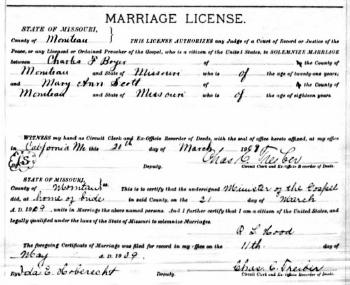 MARRIAGE LICENSE.
STATE OF MISSOURI,
County of Moniteau THIS LICENSE AUTHORIZES any Judge of a Court of Record or Justice of the
Peace, or any Licensed or Ordained Preacher of the Gospel, who is a citizen of the United States, to SOLEMNIZE MARRIAGE
between Charles F Boyer of in the County
Moniteau and State of Missouri who is of the age of twenty-one years;
and Mary Ann Scott of in the County
Moniteau and State of Missouri who is of the age of eighteen years
WITNESS my hand as Circuit Clerk and Ex-Officio Recorder of Deeds, with the seal of office hereto affixed, at my office
in California Mo this day of March
Chas. C. Treiber
Deputy. Circuit Clerk and Ex-Officio Recorder of Deeds.
STATE OF MISSOURI,
County of Moniteau ss. This is to certify that the undersigned Minister of the Gospel
did, at home of bride in said County, on the 21 day of March
A. D. unite in Marriage the above named persons. And I further certify that I am a citizen of the United States, and
legally qualified under the laws of the State of Missouri to solemnize Marriages.
R L Hood
The foregoing Certificate of Marriage was filed for record in my office on the 11th day of
May A. D.
By Ida E. Hoberecht Chas. C. Treiber
Deputy. Circuit Clerk and Ex-Officio Recorder of Deeds.